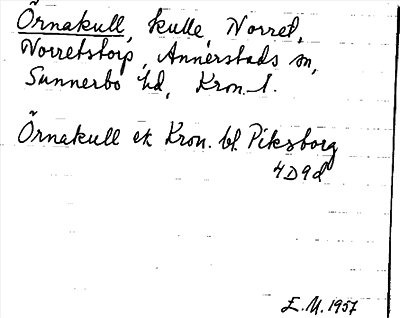 Örnakull, kulle, Norret,
Norretstorp, Annerstads sn,
Sunnerbo hd, Kron. l.
Örnakull ek Kron. bl. Piksborg
4D9d
E.M. 1957